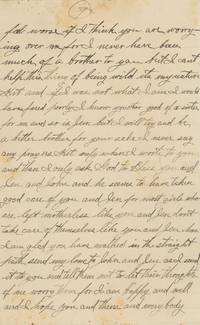 7
feel worse if I think you are worry-
ing over me for I never have been
much of a brother to you but I can't
help this thing of being wild its my nature
Kit and if I was not what I am I would
have good for I know another good of a sister
for me and so is Jen but I will try and be
a better brother for your sake I never say
any prayers Kit only when I wrote to you
and then I only ask God to bless you and
Jen and John and he seems to have taken
good care of you and Jen for most girls who
are left motherless like you and Jen dont
take care of themselves like you and Jen have
I am glad you have walked in the straight
path send my love to John and Jen as I send
it to you and tell them not to let their thoughts
of me worry them for I am happy and well
and I hope you and them and everybody